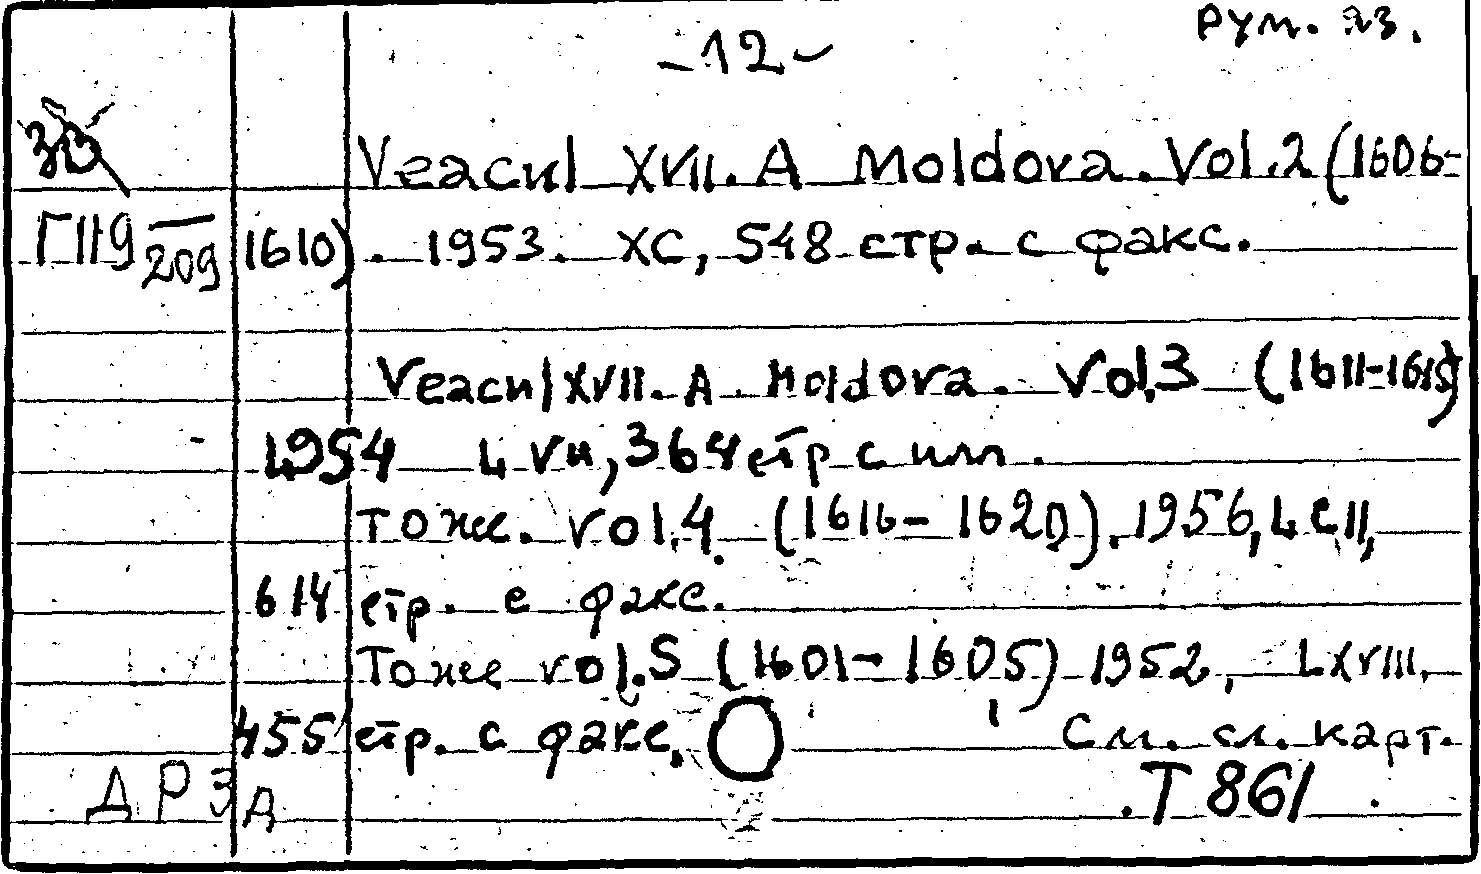 Рум. яз.
-12-
Veacul XVII. A Moldova. Vol.2 (1606-
Г119/209 1610). 1953. XC, 548 стр. с факс.
Veacul XVII. A. Moldova. Vol.3 (1611-1615)
1954 LVII, 364 стр с илл.
Тоже. Vol.4. (1616-1620). 1956, LCII,
614 стр. с факс.
Тоже vol.5 (1601-1605) 1952, LXVIII,
455 стр. с факс.
См. сл. карт.
ДРЗД
Т 861